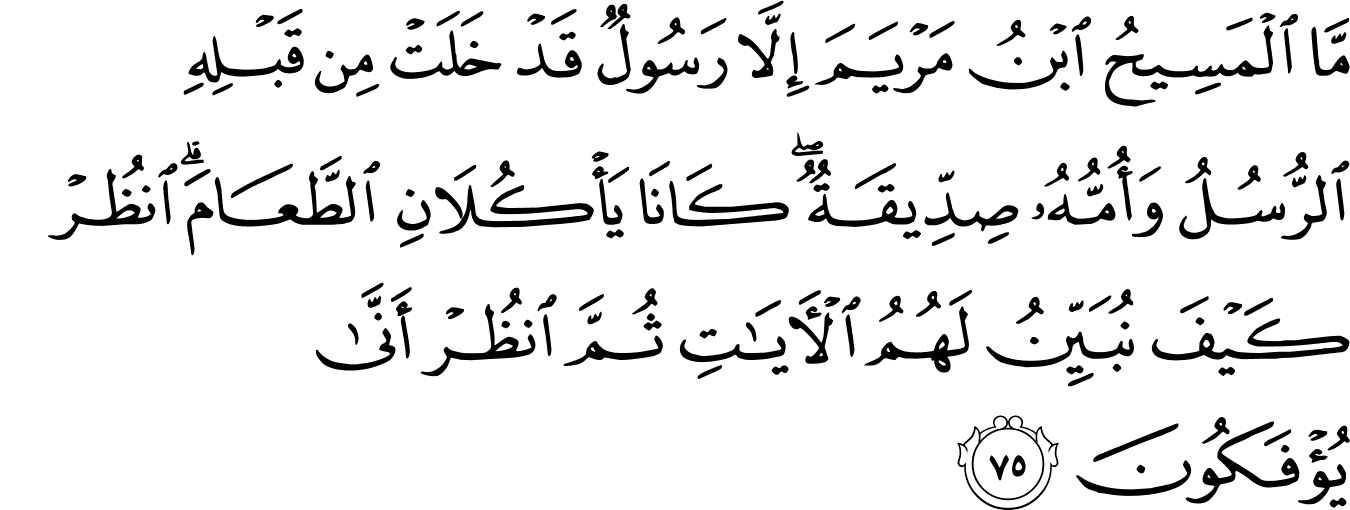 مَّا ٱلْمَسِيحُ ٱبْنُ مَرْيَمَ إِلَّا رَسُولٌ قَدْ خَلَتْ مِن قَبْلِهِ
ٱلرُّسُلُ وَأُمُّهُۥ صِدِّيقَةٌ ۖ كَانَا يَأْكُلَانِ ٱلطَّعَامَ ۗ ٱنظُرْ
كَيْفَ نُبَيِّنُ لَهُمُ ٱلْأَيَـٰتِ ثُمَّ ٱنظُرْ أَنَّىٰ
يُؤْفَكُونَ ٧٥